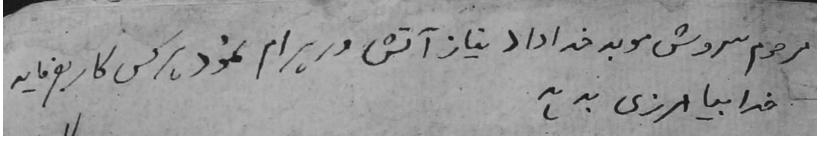 مرحوم سروش موبد خداداد نیاز آتش ورهرام نمود هر کس کار بفرماید
خدا بیامرزی بدهد